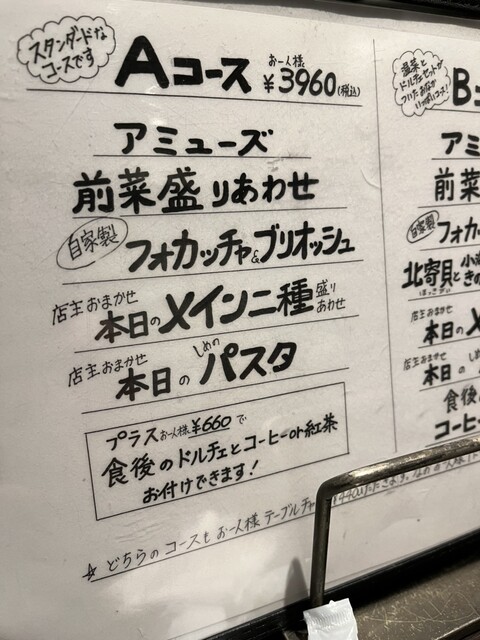 スタンダードな
コースです
Aコース
お一人様
¥3960(税込)
アミューズ
前菜盛りあわせ
自家製
フォカッチャ&ブリオッシュ
店主おまかせ
本日のメイン二種盛りあわせ
店主おまかせ
本日のしめのパスタ
プラスお一人様¥660で
食後のドルチェとコーヒーor紅茶
お付けできます!
☆どちらのコースもお一人様テーブルチャ
¥440いただきます。
温菜と
ドルチェセットが
ついた
いっぱいコース!
B
アミ
前菜
自家製
フォカ
北寄貝と
ほっきがい
店主おまかせ
本日のメ
店主おまかせ
本日の
食後
コーヒ